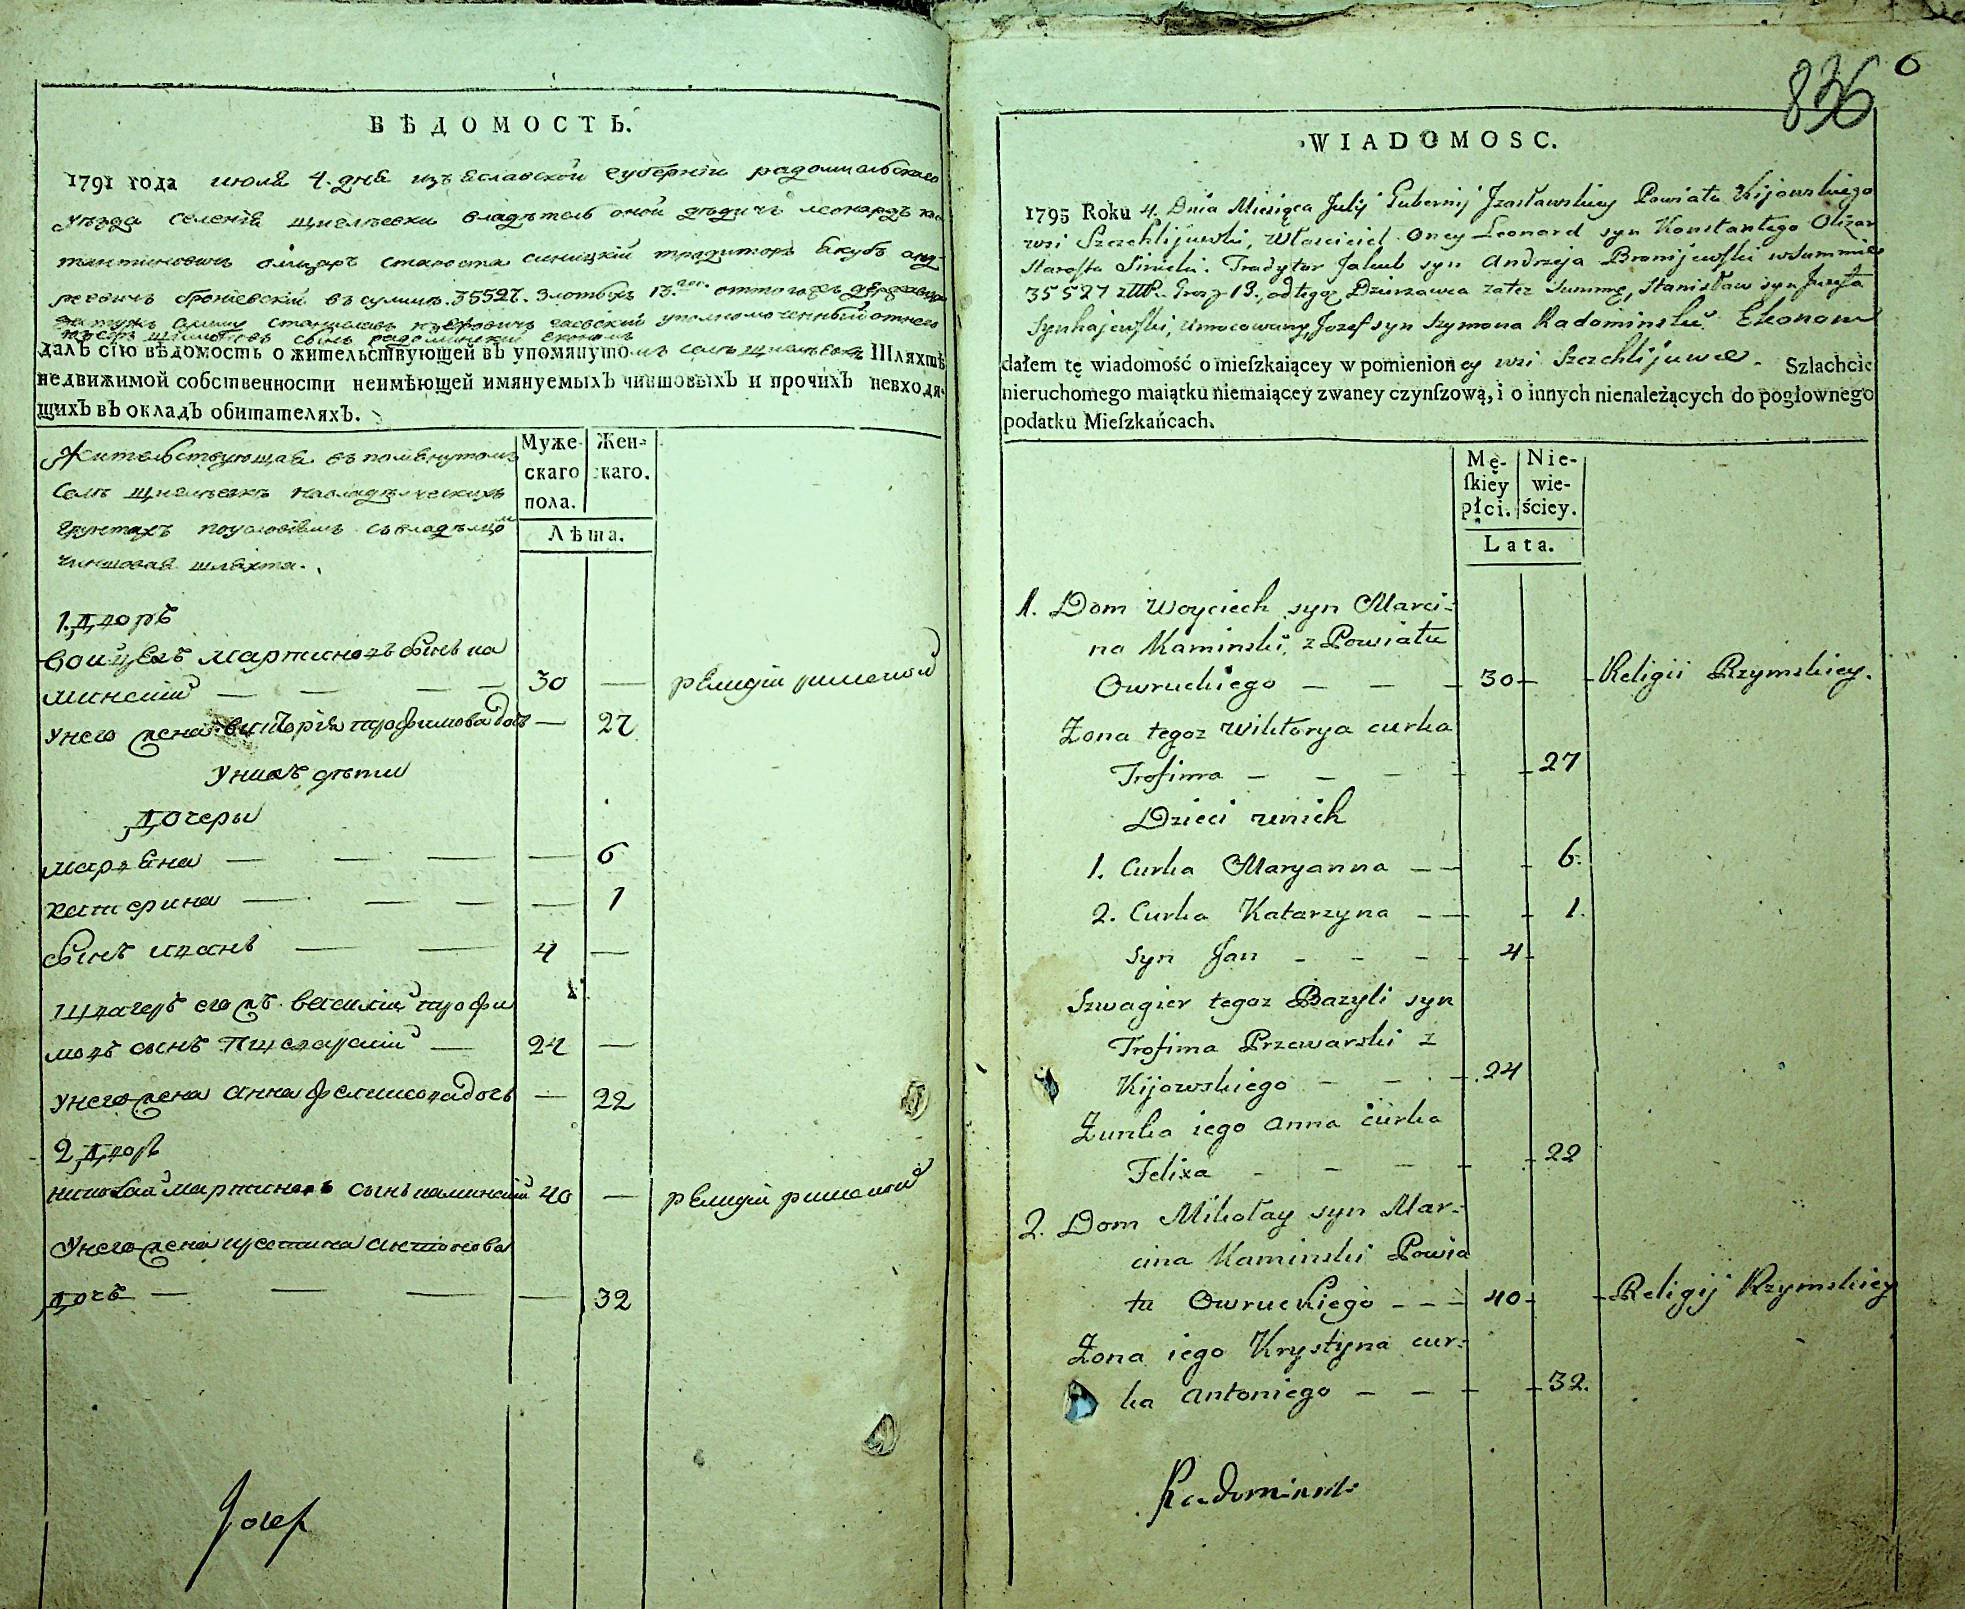 ВѢДОМОСТЬ.
1791 года июля 4. дня изъяславской губерніи радомысльскаго
уѣзда селенія владѣтель оной дѣдичъ леонардъ
олизаръ староста синицкій традиторъ якубъ анд-
реевичъ броніевскій въ суммѣ. 35527. злотыхъ 13. гро.
станиславъ уполномоченный отнего
сынъ радоминскій економъ
далъ сію вѣдомость о жительствующей въ упомянутомъ селѣ Шляхтѣ
недвижимой собственности неимѣющей имянуемыхъ чиншовыхъ и прочихъ невходя-
щихъ въ окладъ обитателяхъ.
Муже-
скаго
пола.
Жен-
скаго.
Лѣта.
Жительствующая въ помянутомъ
селѣ навладѣлческихъ
грунтахъ поусловіямъ
чиншовая шляхта.
1. дворъ
Войцехъ мартиновъ сынъ ка
минскій — — — — 30 — религіи римской
унего жена викторія трофимова дочь — 27
унихъ дѣти
дочеры
марьяна — — — — 6
катерина — — — — 1
сынъ иванъ — — 4 —
швагеръ егожъ василій трофи
мовъ сынъ пшеварскій — 24 —
унего жена анна феликсова дочь — 22
2 дворъ
николай мартиновъ сынъ каминскій 40 — религіи римской
унего жена кристина антонова
дочъ — — — — 32
Jozef
836 6
WIADOMOSC.
1795 Roku 4. Dnia Miesiąca Julij Gubernij Izasławskiey Powiatu Kijowskiego
wsi Szczehlijuwki, Własciciel Oney Leonard syn Konstantego Olizar
Starosta Sinicki. Tradytor Jakub syn Andrzeja Bronijewski w Summie
35527 złłP. Grosz 13, od tegoz Dzierzawca zatez Summę, Stanisław syn Jozefa
Synhajewski, umocowany Jozef syn Szymona Radominski. Ekonom
dałem tę wiadomość o mieſzkaiącey w pomienioney wsi Szczehlijuwce. Szlachcie
nieruchomego maiątku niemaiącey zwaney czynſzową, i o innych nienależących do pogłownego
podatku Mieſzkańcach.
Mę-
ſkiey
płci.
Nie-
wie-
ściey.
Lata.
1. Dom Woyciech syn Marci-
na Kaminski, z Powiatu
Owruckiego — — — 30 — Religii Rzymskiey.
Zona tegoz Wiktorya curka
Trofima — — — 27
Dzieci unich
1. Curka Maryanna — — 6.
2. Curka Katarzyna — — 1.
syn Jan — — — 4
Szwagier tegoz Bazyli syn
Trofima Przewarski z
Kijowskiego — — 24
Zunka iego Anna curka
Felixa — — — 22
2. Dom Mikołay syn Mar-
cina Kaminski Powia
tu Owruckiego — — — 40 — Religij Rzymskiey
Zona iego Krystyna cur-
ka Antoniego — — — 32.
Radominski